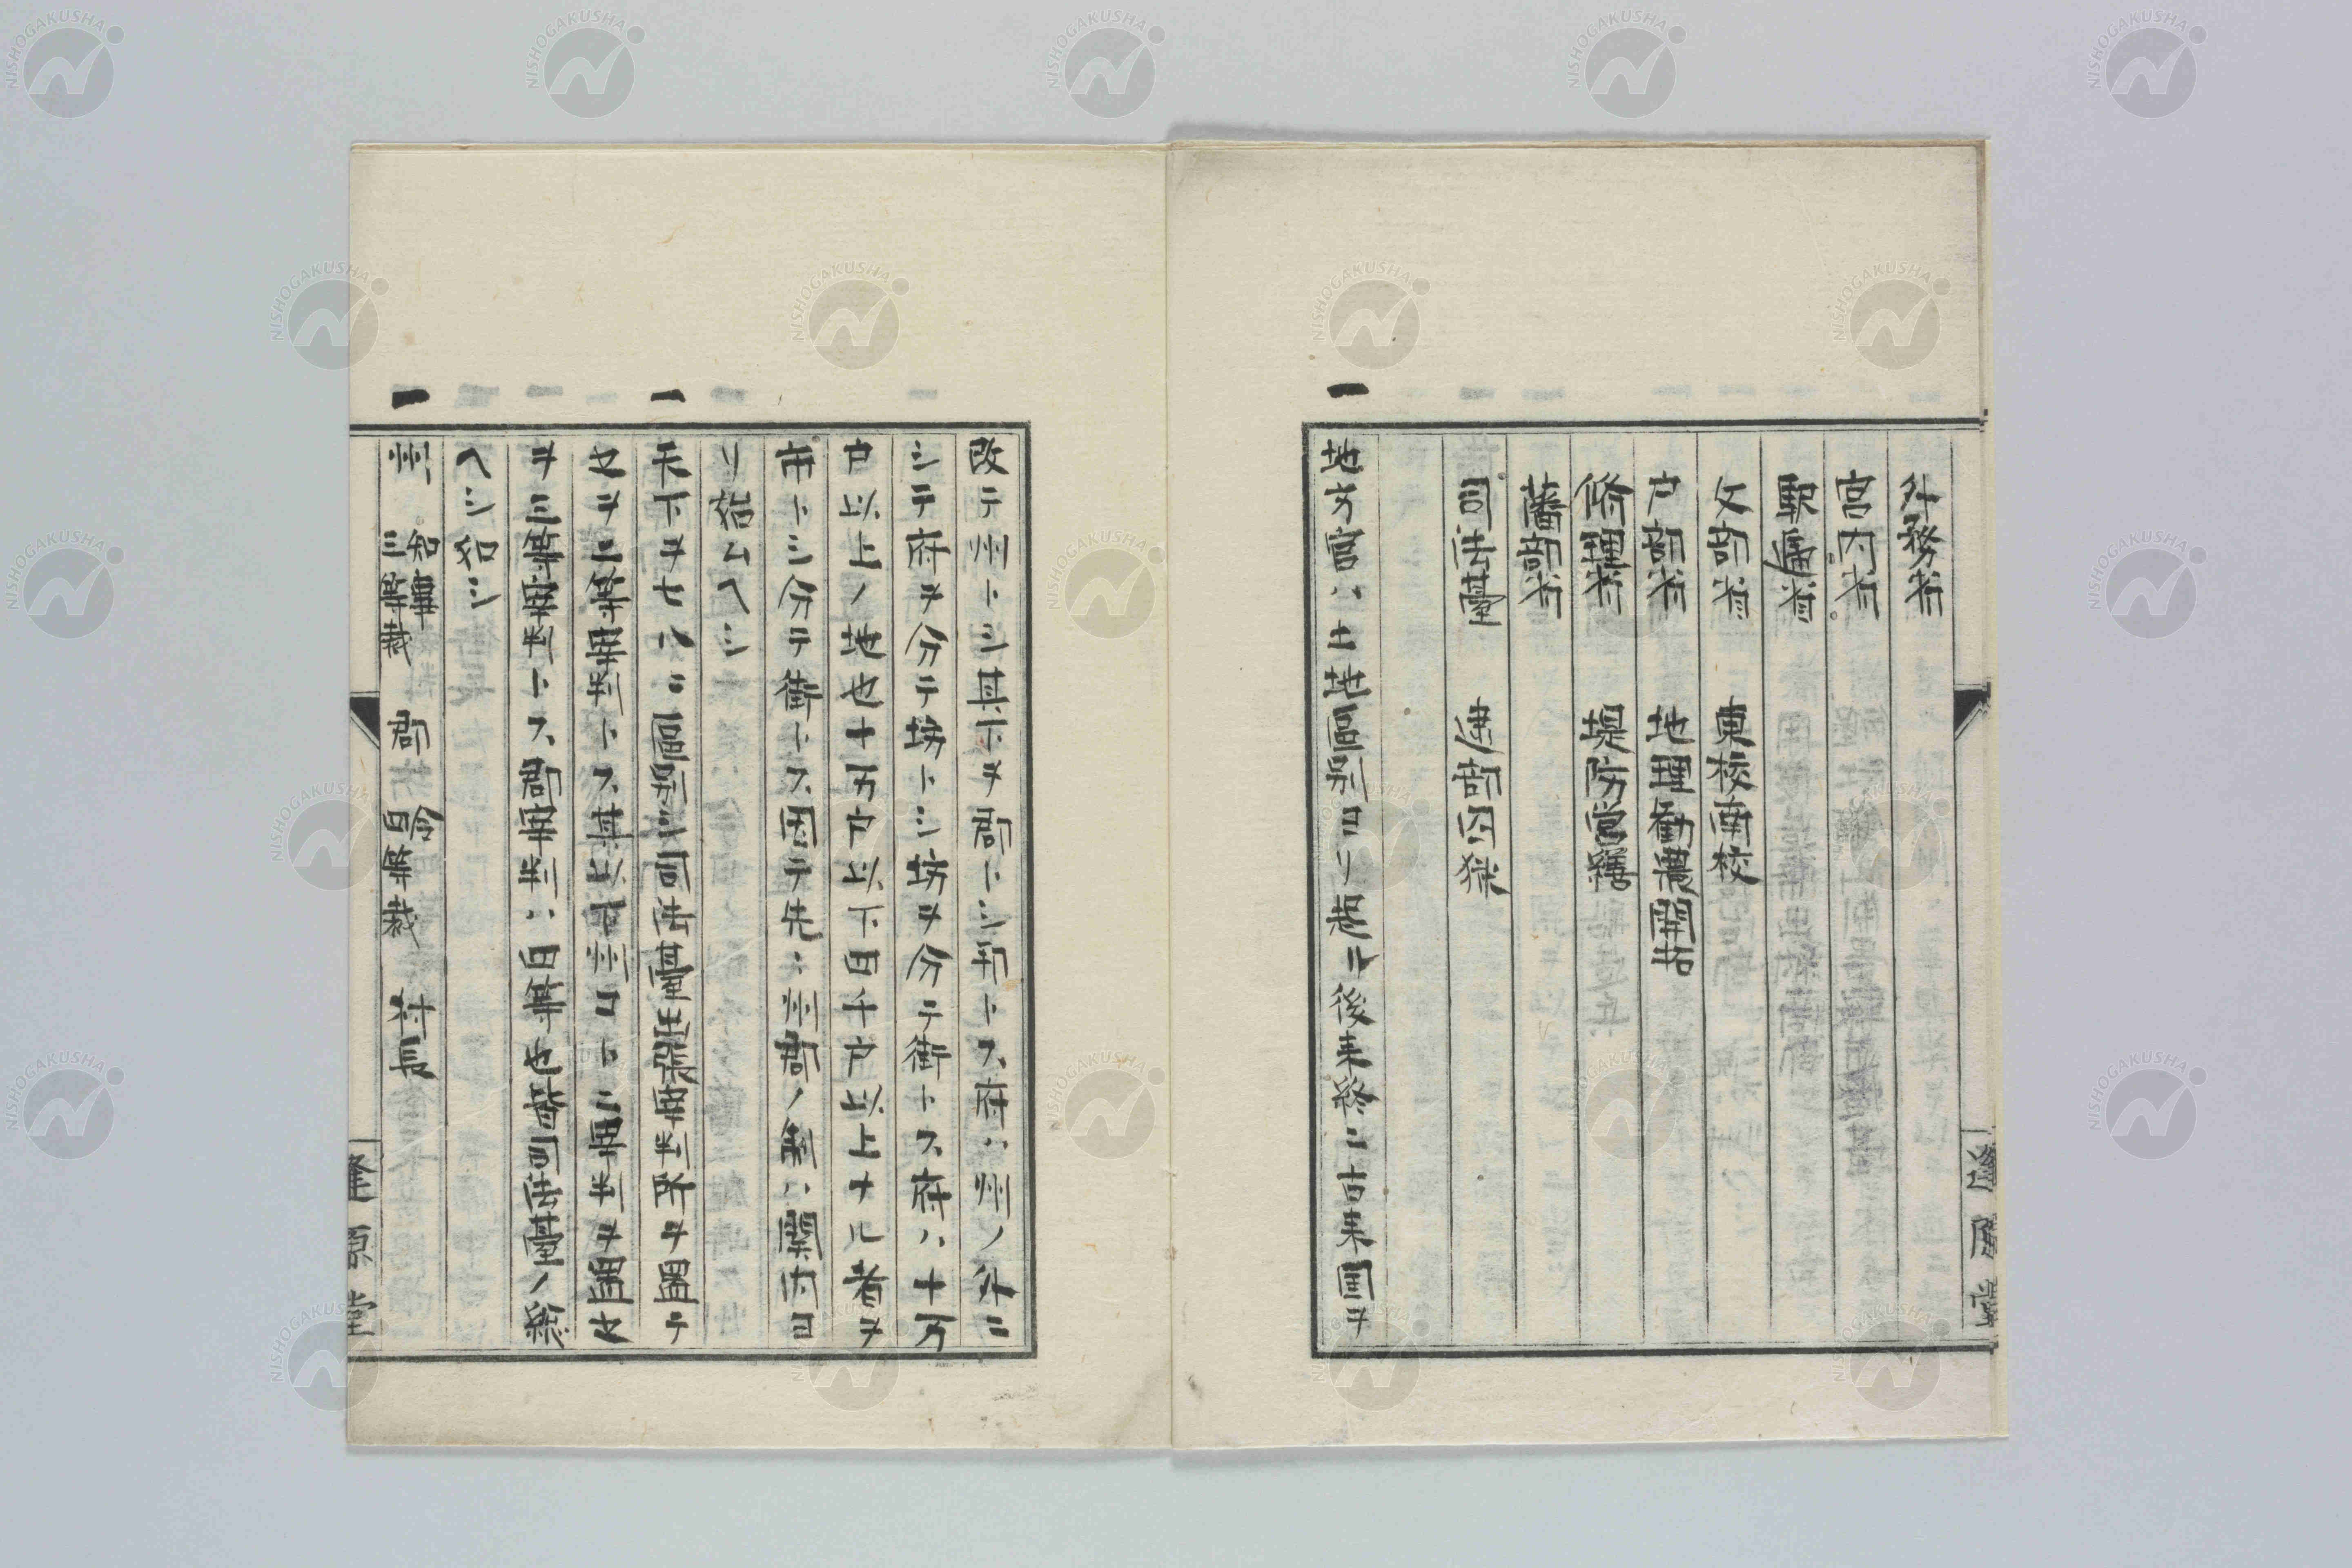 外務省
宮内省
駅逓省
文部省 東校南校
戸部省 地理勧農開拓
修理省 堤防営繕
藩部省
司法臺 逮部囚獄
一 地方官ハ土地區别ヨリ起ル後来終ニ古来国ヲ
逢原堂
改テ州トシ其下ヲ郡トシ邨トス府ハ州ノ外ニ
シテ府ヲ分テ坊トシ坊ヲ分テ街トス府ハ十万
戸以上ノ地也十万戸以下四千戸以上ナル者ヲ
市トシ分テ街トス因テ先ニ州郡ノ制ハ関内ヨ
リ始ムヘシ
一 天下ヲ七八ニ區别シ司法臺出張宰判所ヲ置テ
之ヲ二等宰判トス其以下州コトニ宰判ヲ置之
ヲ三等宰判トス郡宰判ハ四等也皆司法臺ノ総
ヘシ知シ
一 州 知事 三等裁 郡 令 四等裁 村長
逢原堂
NISHOGAKUSHA